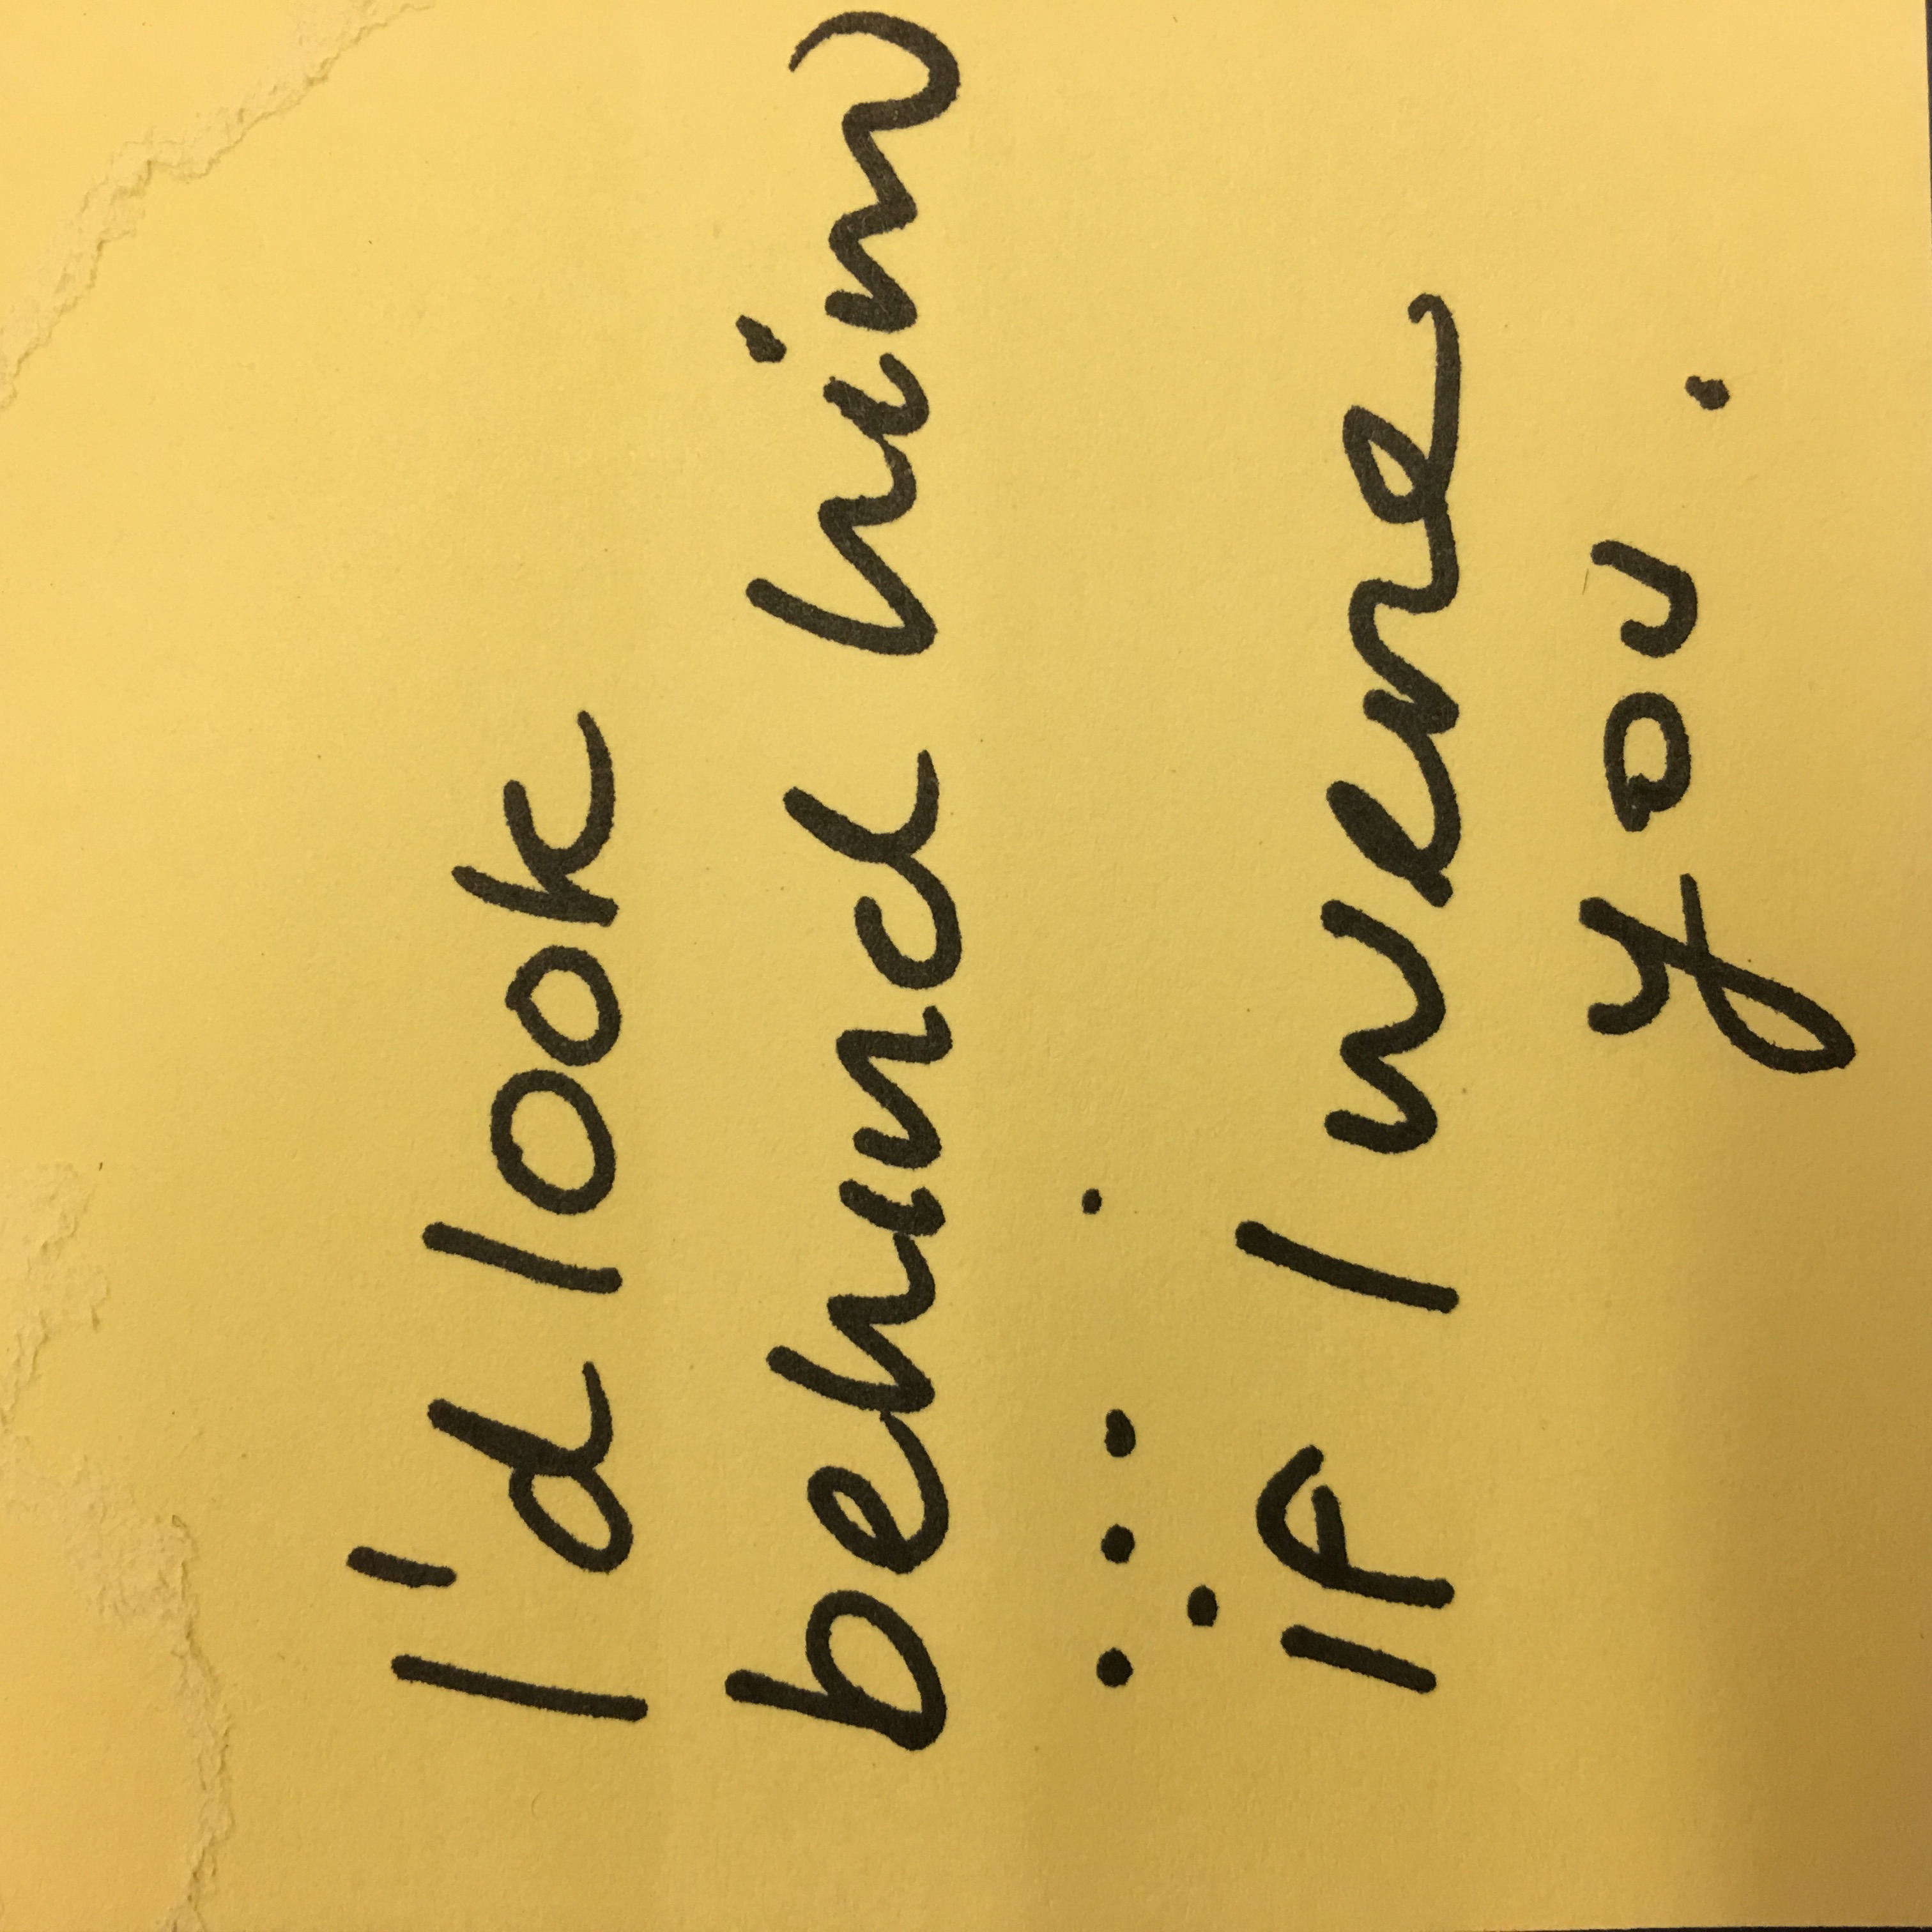 I'd look
behind him
... .
if I were
you.